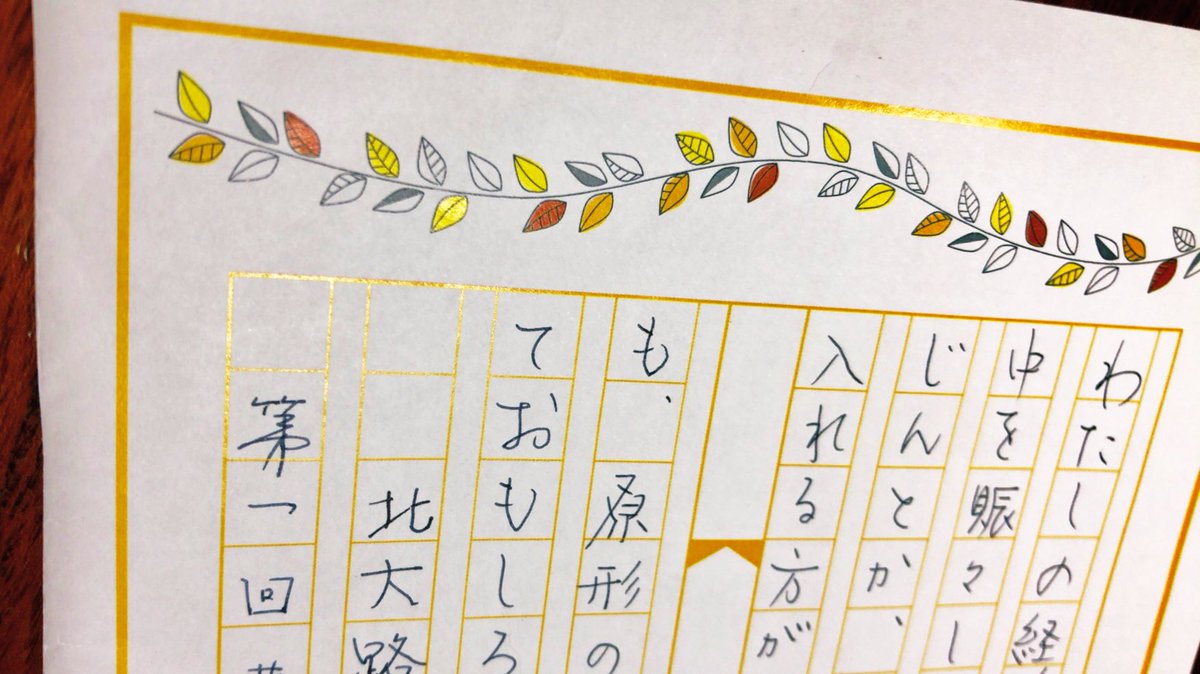 わたしの経
中を賑々し
じんとか、
入れる方が
も、原形の
ておもしろ
北大路
第一回